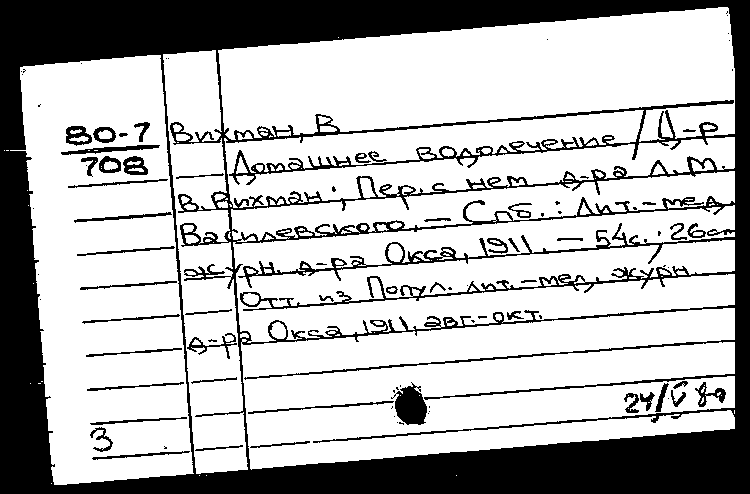 80-7 Вихман, В
708 Домашнее водолечение / Д-р
В. Вихман; Пер. с нем д-ра Л.М.
Василевского. — Спб.: Лит.-мед.
журн. д-ра Окса, 1911. — 54с.; 26см
Отт. из Попул. лит.-мед. журн.
д-ра Окса, 1911, авг.-окт.
24/V
3